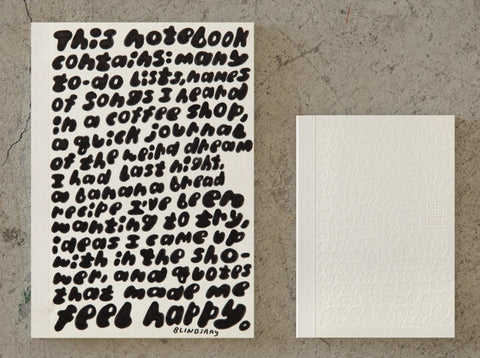 This notebook
contains: many
to-do lists, names
of songs I heard
in a coffee shop,
a quick journal
of the weird dream
I had last night,
a banana bread
recipe I've been
wanting to try,
ideas I came up
with in the sho-
wer, and quotes
that made me
feel happy.
BLINDSAAY